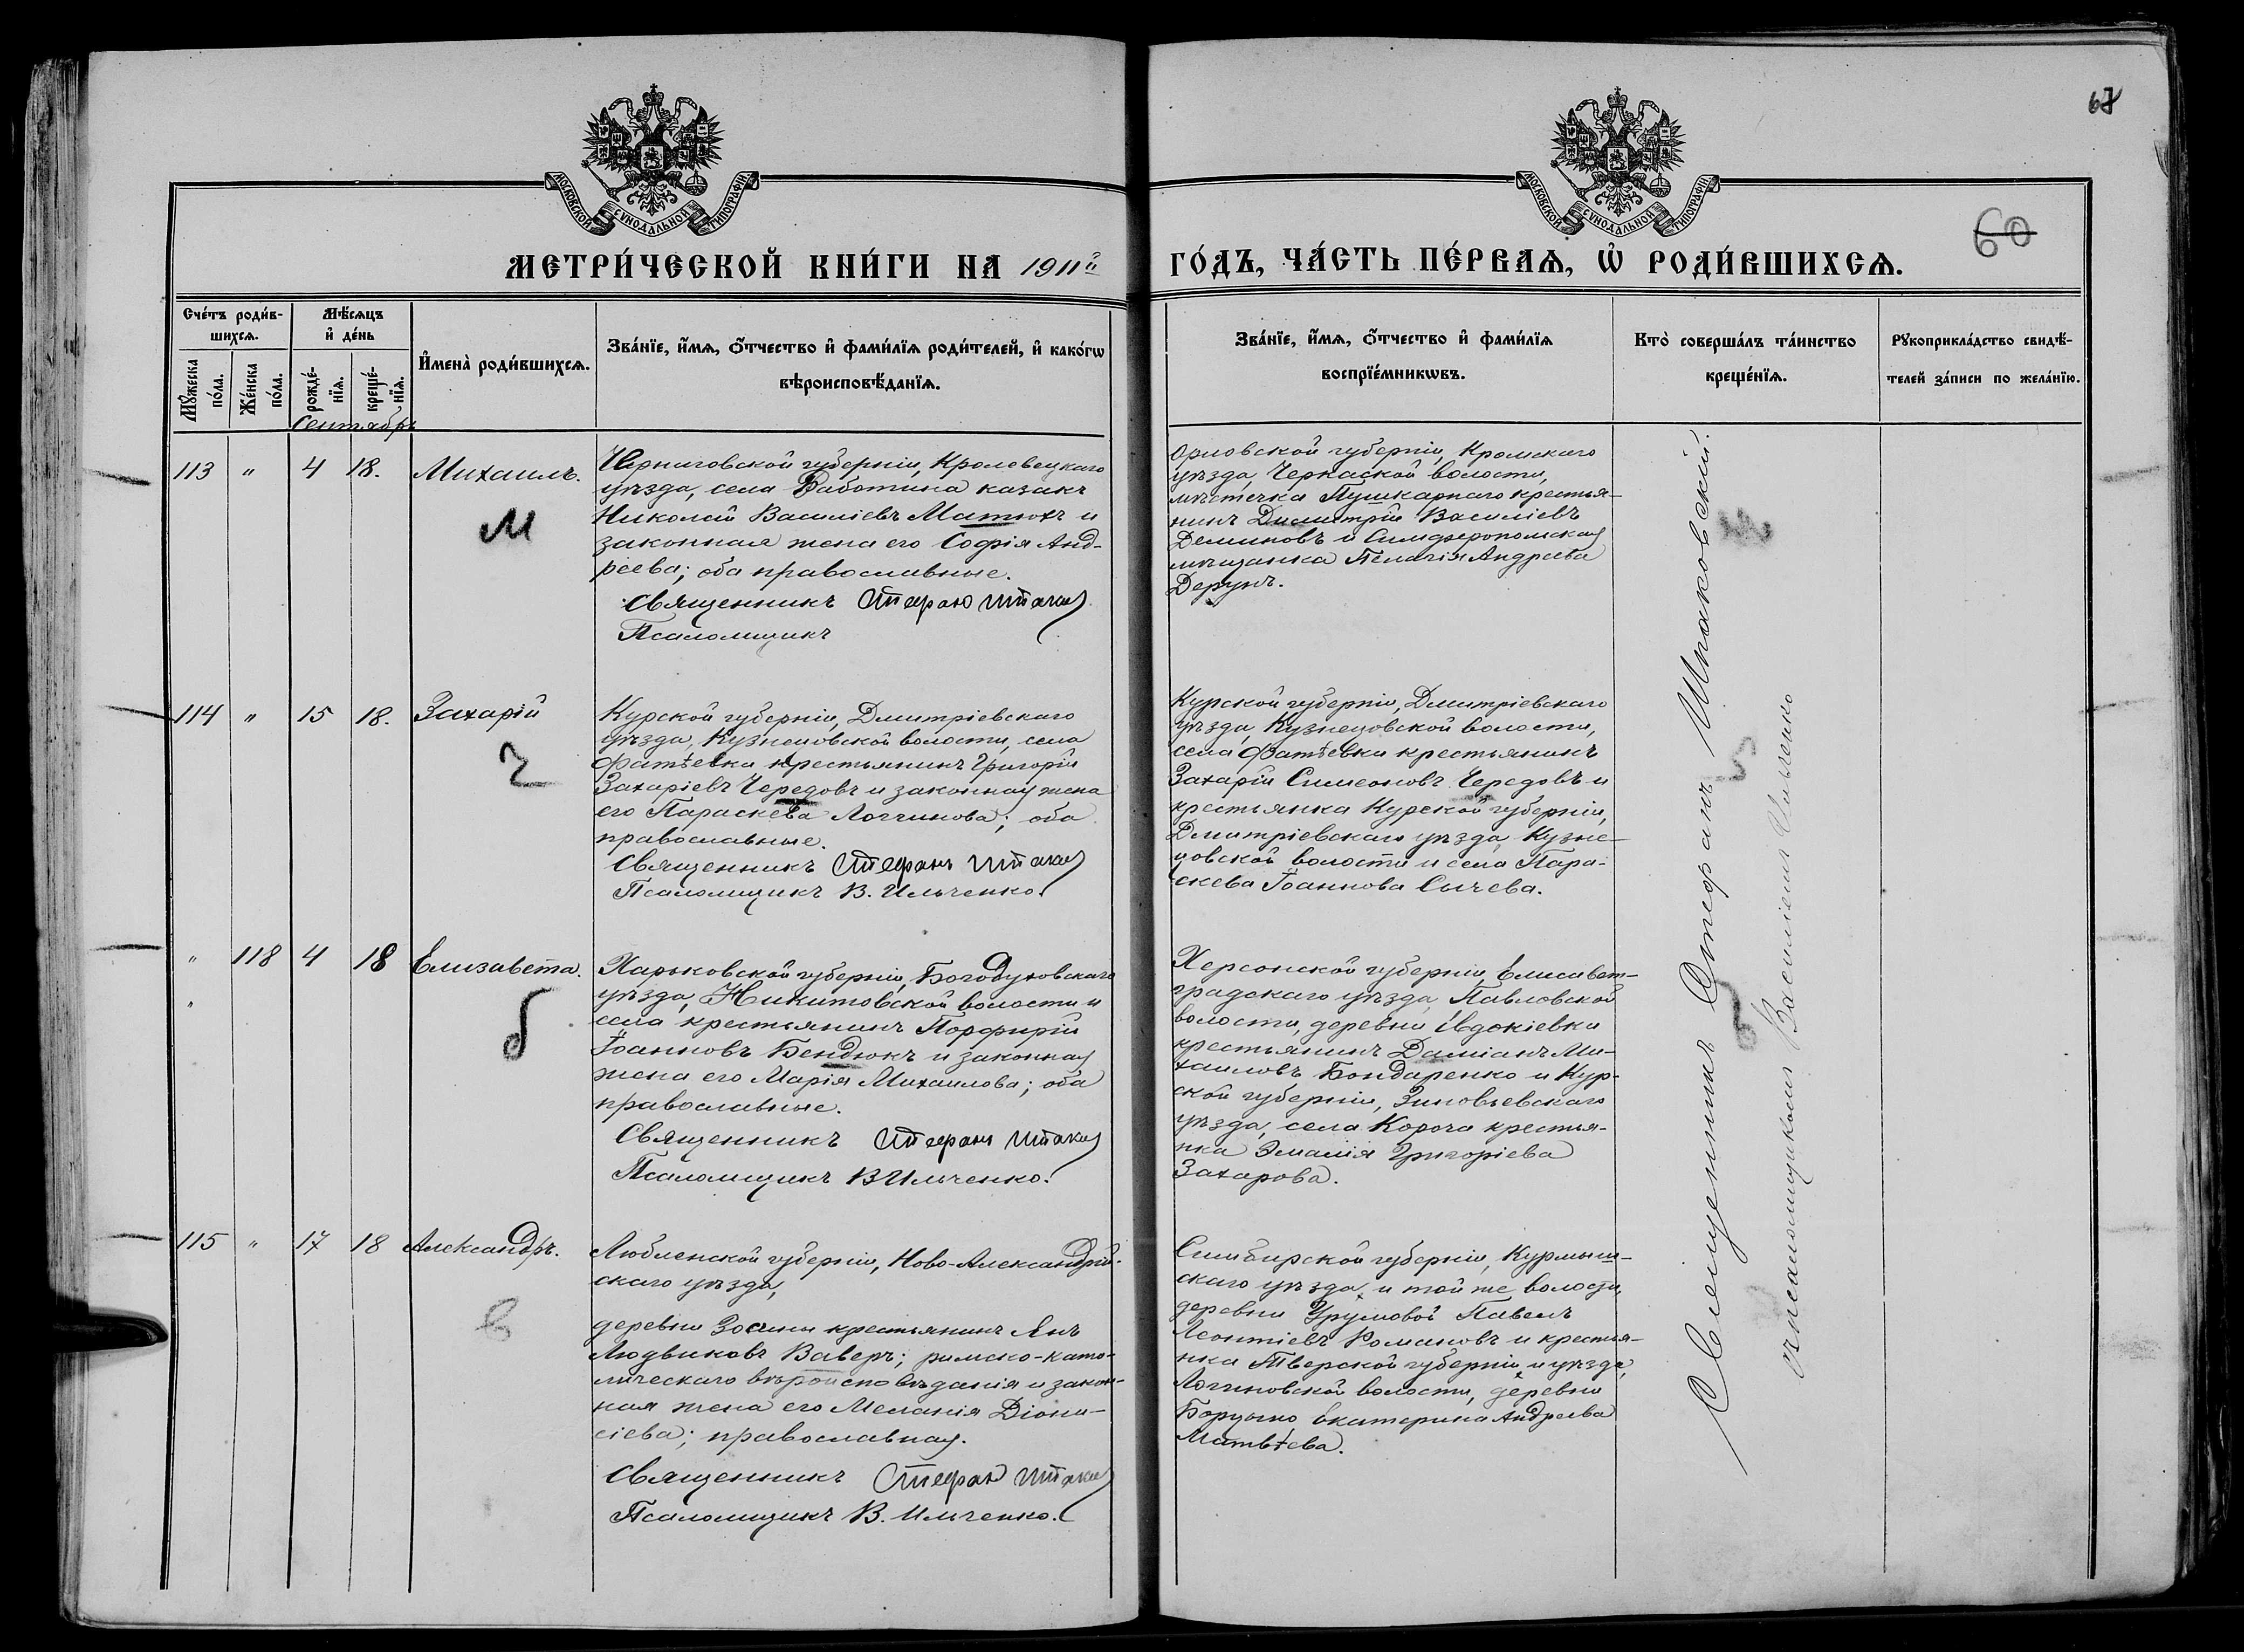 68
60
МОСКОВСКОЙ СѴНОДАЛЬНОЙ ТИПОГРАФІИ
МОСКОВСКОЙ СѴНОДАЛЬНОЙ ТИПОГРАФІИ
МЕТРИ́ЧЕСКОЙ КНИ́ГИ НА 1911й
ГО́ДЪ, ЧА́СТЬ ПЕ́РВАѦ, Ѡ҆ РОДИ́ВШИХСѦ.
Сче́тъ роди́в-
шихсѧ.
Мѣ́сѧцъ
и҆ де́нь
Мꙋ́жеска по́ла.
Же́нска по́ла.
рожде́-нїѧ.
креще́-нїѧ.
И҆мена̀ роди́вшихсѧ.
Зва́нїе, и҆́мѧ, ѻ҆́тчество и҆ фами́лїѧ роди́телей, и҆ како́гѡ
вѣроисповѣ́данїѧ.
Зва́нїе, и҆́мѧ, ѻ҆́тчество и҆ фами́лїѧ
воспрїе́мникѡвъ.
Кто̀ соверша́лъ та́инство
креще́нїѧ.
Рꙋкоприкла́дство свидѣ́-
телей за́писи по жела́нїю.
Сентябрь
113 " 4 18. Михаилъ.
М
Черниговской губерніи, Кролевецкаго
уѣзда, села Работина казакъ
Николай Василіевъ Матюхъ и
законная жена его Софія Анд-
реева; оба православные.
Священникъ Стефан Шпаков
Псаломщикъ
Орловской губерніи, Кромскаго
уѣзда, Черкаской волости,
мѣстечка Пушкарнаго крестья-
нинъ Димитрій Василіевъ
Деминовъ и Симферопольская
мѣщанка Пелагія Андреева
Дерунъ.
114 " 15 18. Захарій
Ч
Курской губерніи, Дмитріевскаго
уѣзда, Кузнецовской волости, села
Фатѣевки крестьянинъ Григорій
Захаріевъ Чередовъ и законная жена
его Параскева Логгинова; оба
православные.
Священникъ Стефанъ Шпаков
Псаломщикъ В. Ильченко.
Курской губерніи, Дмитріевскаго
уѣзда, Кузнецовской волости,
села Фатѣевки крестьянинъ
Захарій Симеоновъ Чередовъ и
крестьянка Курской губерніи,
Дмитріевскаго уѣзда, Кузне-
цовской волости и села Пара-
скева Іоаннова Сычева.
" 118 4 18 Елизавета.
"
Б
Харьковской губерніи, Богодуховскаго
уѣзда, Никитовской волости и
села крестьянинъ Порфирій
Іоанновъ Бендюкъ и законная
жена его Марія Михаилова; оба
православные.
Священникъ Стефанъ Шпаков
Псаломщикъ В Ильченко.
Херсонской губерніи, Елисавет-
градскаго уѣзда, Павловской
волости, деревни Евдокіевки
крестьянинъ Даміанъ Ми-
хаиловъ Бондаренко и Кур-
ской губерніи, Зиновьевскаго
уѣзда, села Короча крестья-
нка Эмилія Григоріева
Захарова.
115 " 17 18 Александръ.
В
Люблинской губерніи, Ново-Александрій-
скаго уѣзда,
деревни Зосины крестьянинъ Янъ
ЛюдвиковъВаверъ; римско-като-
лическаго вѣроисповѣданія и закон-
ная жена его Меланія Діони-
сіева; православная.
Священникъ Стефан Шпаков
Псаломщикъ В. Ильченко.
Симбирской губерніи, Курмыш-
скаго уѣзда, и той же волости,
деревни Урумовой Павелъ
Леонтіевъ Романовъ и крестья-
нка Тверской губерніи и уѣзда,
Логиновской волости, деревни
Екатерина Андреева
Матвѣева.
Священникъ Стефанъ Шпаковскій.
съ псаломщикомъ Василіемъ Ильченко